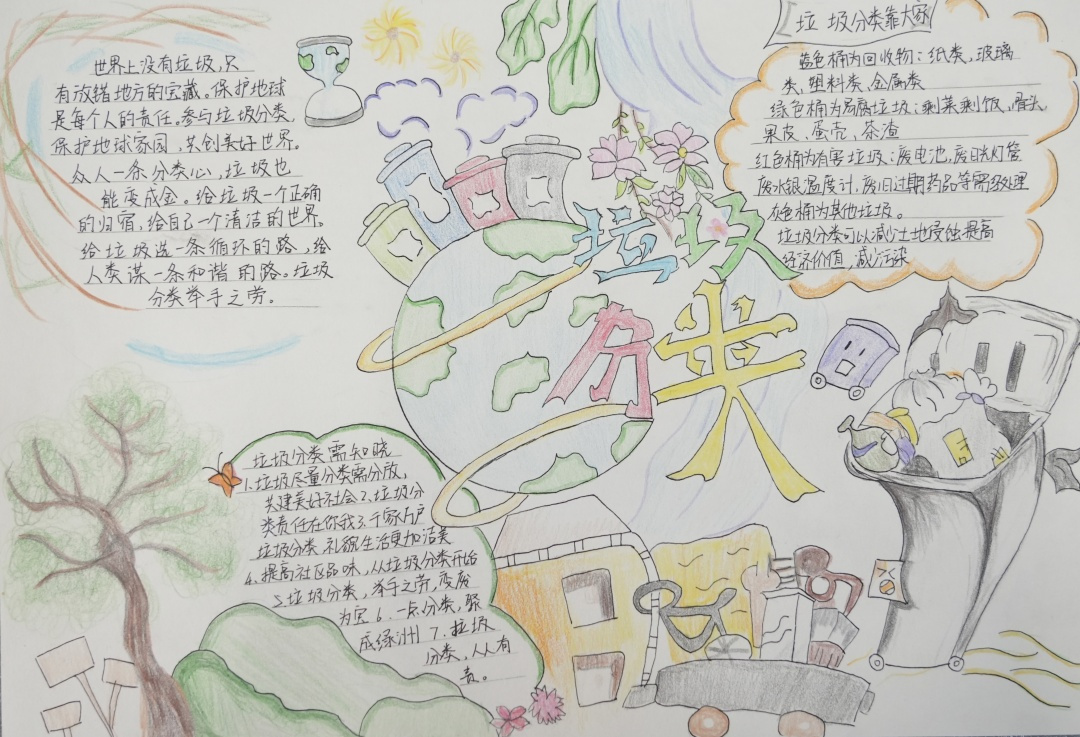 世界上没有垃圾,只
有放错地方的宝藏。保护地球
是每个人的责任。参与垃圾分类,
保护地球家园,共创美好世界。
众人一条分类心,垃圾也
能变成金。给垃圾一个正确
的归宿,给自己一个清洁的世界。
给垃圾选一条循环的路,给
人类谋一条和谐的路。垃圾
分类举手之劳。
垃圾分类靠大家
蓝色桶为回收物:纸类,玻璃
类、塑料类、金属类
绿色桶为厨腐垃圾:剩菜剩饭,骨头
果皮、蛋壳、茶渣
红色桶为有害垃圾:废电池,废日光灯管
废水银温度计,废旧过期药品等需
处理
灰色桶为其他垃圾。
垃圾分类可以减少土地侵蚀提高
经济价值,减少污染
垃圾
分类
垃圾分类需知晓
1.垃圾尽量分类需分放,
共建美好社会2.垃圾分
类责任在你我3.千家万户
垃圾分类,礼貌生活更加洁美
4.提高社区品味,从垃圾分类开始
5.垃圾分类,举手之劳,变废
为宝6.一点分类,聚
成绿洲7.垃圾
分类,人人有
责。